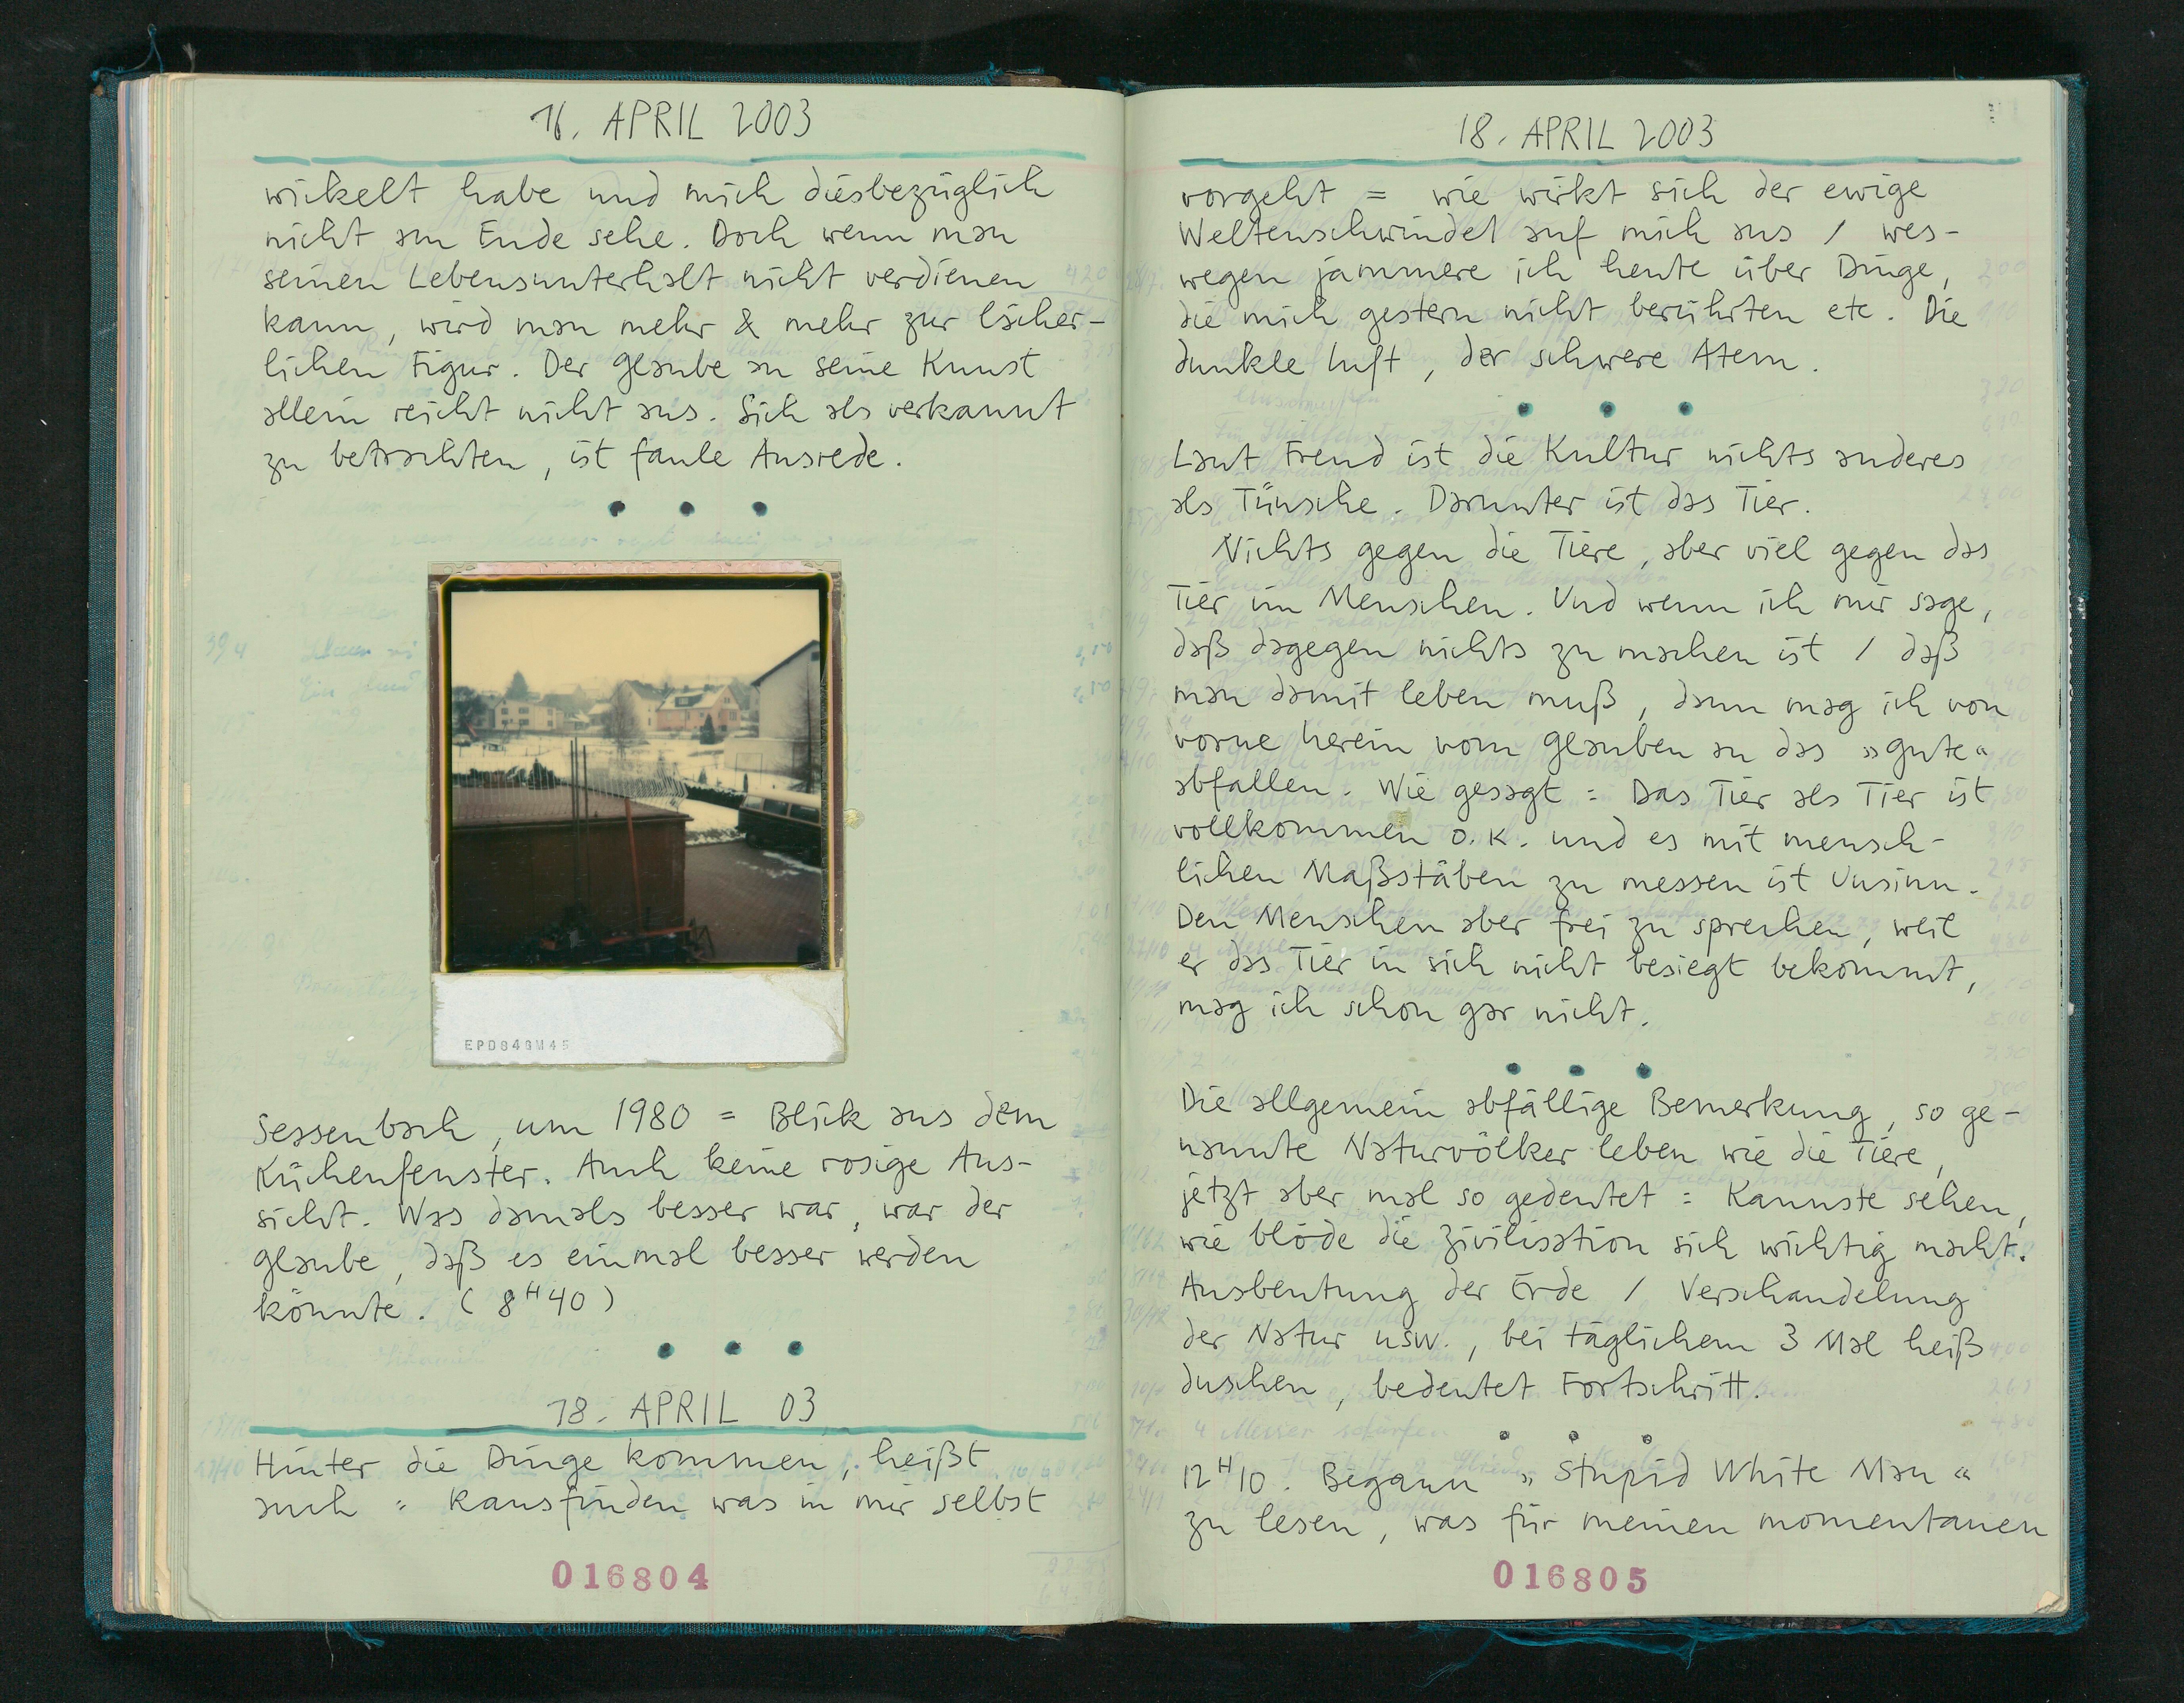 16. APRIL 2003
wickelt habe und mich diesbezüglich
nicht am Ende sehe. Doch wenn man
seinen Lebensunterhalt nicht verdienen
kann, wird man mehr & mehr zur lächer-
lichen Figur. Der Glaube an seine Kunst
allein reicht nicht aus. Sich als verkannt
zu betrachten, ist faule Ausrede.
• • •
EPD84GM45
Sessenbach, um 1980 = Blick aus dem
Küchenfenster. Auch keine rosige Aus-
sicht. Was damals besser war, war der
Glaube, daß es einmal besser werden
könnte. (8H40)
• • •
18. APRIL 03
Hinter die Dinge kommen, heißt
auch : Rausfinden was in mir selbst
016804
18. APRIL 2003
vorgeht = wie wirkt sich der ewige
Weltenschwindel auf mich aus / wes-
wegen jammere ich heute über Dinge,
die mich gestern nicht berührten etc. Die
dunkle Luft, der schwere Atem.
• • •
Laut Freud ist die Kultur nichts anderes
als Tünche. Darunter ist das Tier.
Nichts gegen die Tiere, aber viel gegen das
Tier im Menschen. Und wenn ich mir sage,
daß dagegen nichts zu machen ist / daß
man damit leben muß, dann mag ich von
vorne herein vom Glauben an das »Gute«
abfallen. Wie gesagt : Das Tier als Tier ist
vollkommen o.k. und es mit mensch-
lichen Maßstäben zu messen ist Unsinn.
Den Menschen aber frei zu sprechen, weil
er das Tier in sich nicht besiegt bekommt,
mag ich schon gar nicht.
• • •
Die allgemein abfällige Bemerkung, so ge-
nannte Naturvölker leben wie die Tiere,
jetzt aber mal so gedeutet : Kannste sehen,
wie blöde die Zivilisation sich wichtig macht.
Ausbeutung der Erde / Verschandelung
der Natur usw., bei täglichem 3 Mal heiß
duschen, bedeutet Fortschritt.
• • •
12H10. Begann »Stupid White Man«
zu lesen, was für meinen momentanen
016805